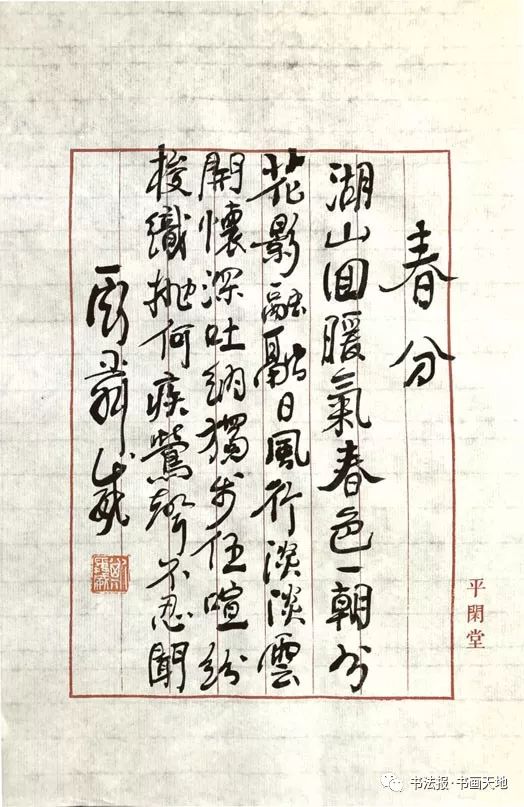 春分
湖山回暖氣春色一朝分
花影融融日風行淡淡雲
開懷深吐納獨步任喧紛
梭織拋何疾鶯聲不忍聞
平閑堂
书法报·书画天地